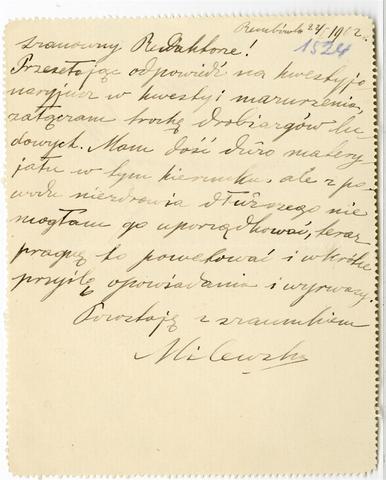 Rembówko 22/I 1902.
1524
Szanowny Redaktorze!
Przesełając odpowiedź na kwestyjo
naryjusz w kwestyi mazurzenia,
załączam trochę drobiazgów lu-
dowych. Mam dość dużo matery
jału w tym kierunku, ale z po-
wodu niezdrowia dłuższego nie
mogłam go uporządkować, teraz
pragnę to powetować i wkrótce
przyślę opowiadania i wyrwasy.
Pozostaję z szacunkiem
Milewska